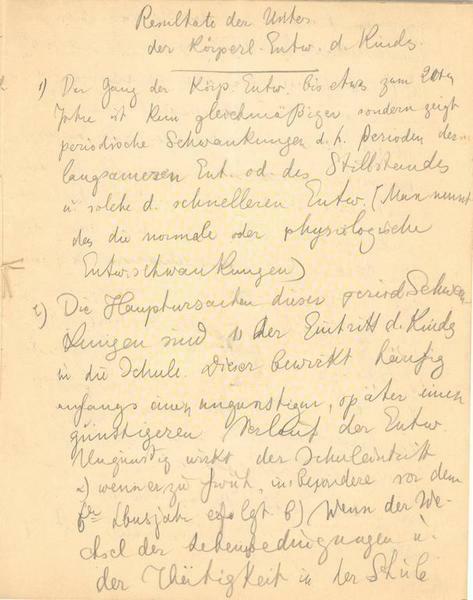 Resultate der Unters.
der Körperl. Entw. d. Kindes.
1) Der Gang der Körp. Entw. bis etwa zum 20ten
Jahre ist kein gleichmäßiger sondern zeigt
periodische Schwankungen d. h. Perioden der
langsameren Ent. od. des Stillstandes
u. solche d. schnelleren Entw. (Man nennt
das die normale oder physiologische
Entw.schwankungen)
2) Die Hauptursachen dieser period. Schwan
kungen sind 1) der Eintritt d. Kindes
in die Schule. Dieser bewirkt häufig
anfangs einen ungünstigen, später einen
günstigeren Verlauf der Entw.
Ungünstig wirkt der Schuleintritt
a) wenn er zu früh, insbesondere vor dem
Lbnsjahr erfolgt b) Wenn der We-
chsel der Lebensbedingungen u.
der Thätigkeit in der Schule